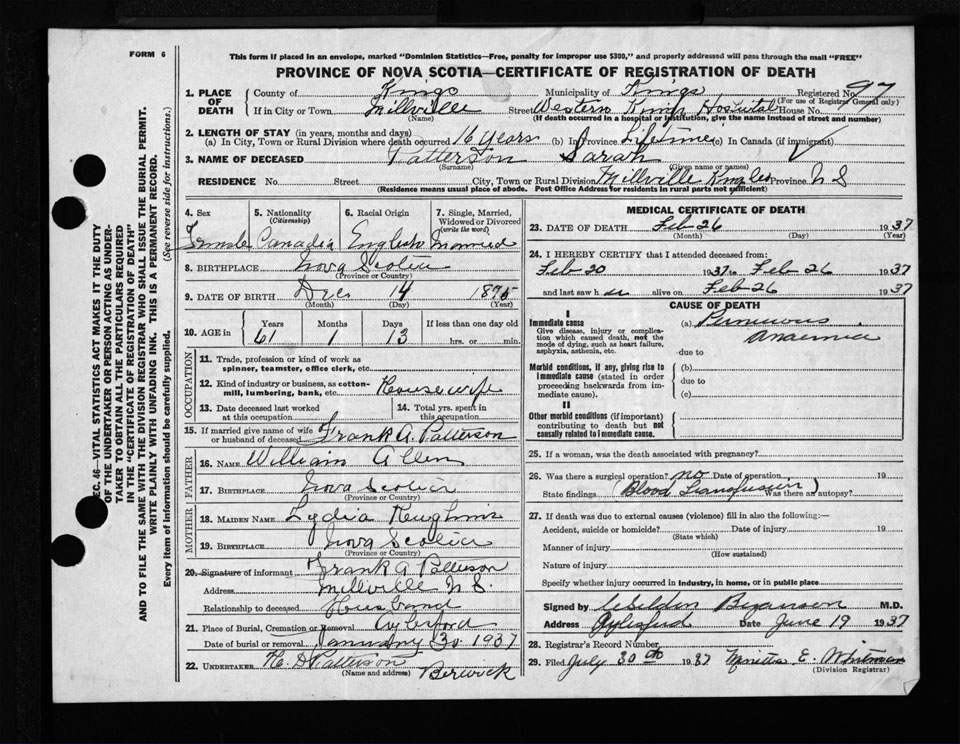 FORM 6
This form if placed in an envelope, marked "Dominion Statistics—Free, penalty for improper use $300," and properly addressed will pass through the mail "FREE"
PROVINCE OF NOVA SCOTIA—CERTIFICATE OF REGISTRATION OF DEATH
1. PLACE OF DEATH County of Kings Municipality of Kings Registered No. 97
(For use of Registrar General only)
If in City or Town Millville Street Western Kings Hospital House No.
(Name) (If death occurred in a hospital or institution, give the name instead of street and number)
2. LENGTH OF STAY (in years, months and days)
(a) In City, Town or Rural Division where death occurred 16 years (b) In Province Lifetime (c) In Canada (if immigrant)
3. NAME OF DECEASED Patterson Sarah
(Surname) (Given name or names)
RESIDENCE No. Street City, Town or Rural Division Millville Kings Co Province N S
(Residence means usual place of abode. Post Office Address for residents in rural parts not sufficient)
4. Sex Female
5. Nationality (Citizenship) Canadia
6. Racial Origin English
7. Single, Married, Widowed or Divorced (write the word) Married
8. BIRTHPLACE Nova Scotia
(Province or Country)
9. DATE OF BIRTH Dec 14 1875
(Month) (Day) (Year)
10. AGE in Years Months Days If less than one day old
61 1 13 hrs. or min.
OCCUPATION
11. Trade, profession or kind of work as spinner, teamster, office clerk, etc.
12. Kind of industry or business, as cotton-mill, lumbering, bank, etc. Housewife
13. Date deceased last worked at this occupation
14. Total yrs. spent in this occupation
15. If married give name of wife or husband of deceased Frank A. Patterson
FATHER
16. NAME William Allen
17. BIRTHPLACE Nova Scotia
(Province or Country)
MOTHER
18. MAIDEN NAME Lydia
19. BIRTHPLACE Nova Scotia
(Province or Country)
20. Signature of informant Frank A Patterson
Address Millville N S.
Relationship to deceased Husband
21. Place of Burial, Cremation or Removal Aylesford
Date of burial or removal January 30 1937
22. UNDERTAKER H. D Patterson Berwick
(Name and address)
MEDICAL CERTIFICATE OF DEATH
23. DATE OF DEATH Feb 26 1937
(Month) (Day) (Year)
24. I HEREBY CERTIFY that I attended deceased from:
Feb 20 1937 to Feb 26 1937
and last saw h er alive on Feb 26 1937
CAUSE OF DEATH
I
Immediate cause (a) Pernicious Anaemia
Give disease, injury or complication which caused death, not the mode of dying, such as heart failure, asphyxia, asthenia, etc.
due to
Morbid conditions, if any, giving rise to immediate cause (stated in order proceeding backwards from immediate cause).
(b)
due to
(c)
II
Other morbid conditions (if important) contributing to death but not causally related to immediate cause.
25. If a woman, was the death associated with pregnancy?
26. Was there a surgical operation? no Date of operation 19
State findings Blood Transfusion Was there an autopsy?
27. If death was due to external causes (violence) fill in also the following:—
Accident, suicide or homicide? Date of injury 19
(State which)
Manner of injury
(How sustained)
Nature of injury
Specify whether injury occurred in industry, in home, or in public place
Signed by M.D.
Address Aylesford Date June 19 1937
28. Registrar's Record Number
29. Filed July 30th 1937 E. Whitman
(Division Registrar)
SEC. 46—VITAL STATISTICS ACT MAKES IT THE DUTY
OF THE UNDERTAKER OR PERSON ACTING AS UNDER-
TAKER TO OBTAIN ALL THE PARTICULARS REQUIRED
IN THE "CERTIFICATE OF REGISTRATION OF DEATH"
AND TO FILE THE SAME WITH THE DIVISION REGISTRAR WHO SHALL ISSUE THE BURIAL PERMIT.
WRITE PLAINLY WITH UNFADING INK. THIS IS A PERMANENT RECORD.
Every item of information should be carefully supplied. (See reverse side for instructions.)